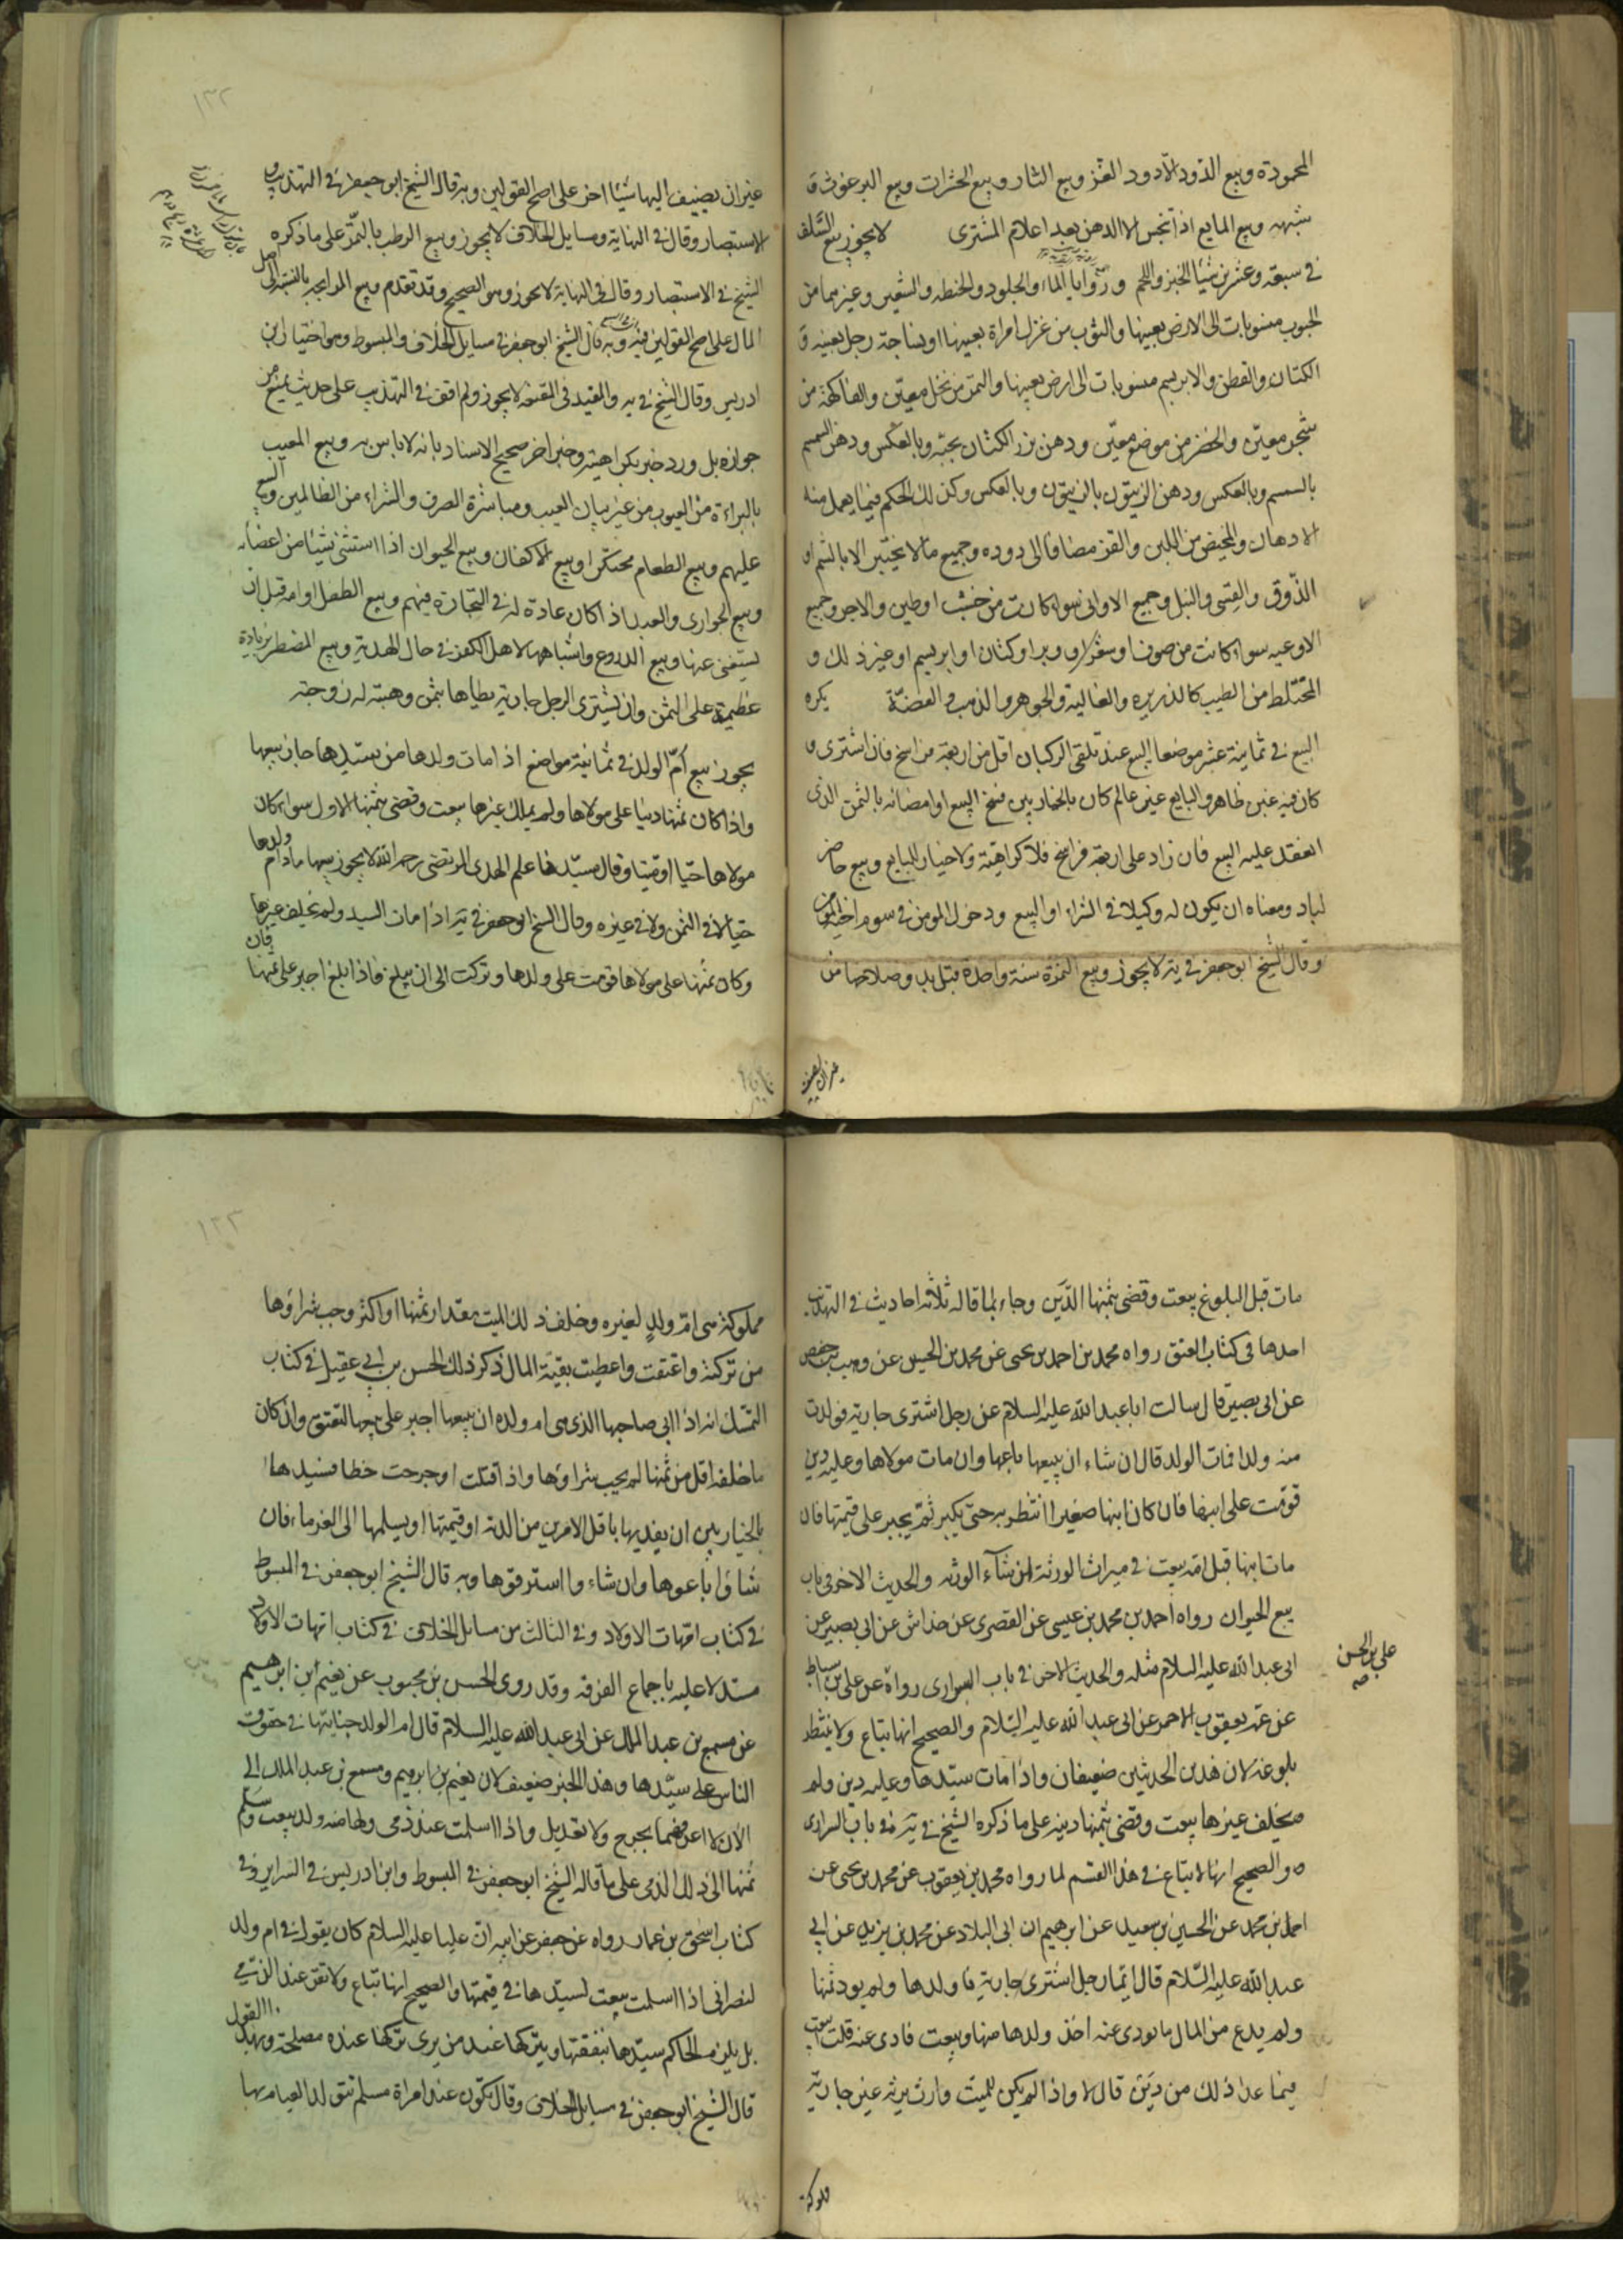 المحمودة وبيع الدود الا دود القز وبيع الثار وبيع الحشرات وبيع البرغوث و
شبهه وبيع المايع اذا نجس الا الدهن بعد اعلام المشترى لا يجوز بيع السلف
فى سبعة وعشرين شيئا الخبز واللحم وروايا الماء والجلود والحنطه والشعير وغيرهما من
الحبوب منسوبات الى الارض بعينها والثوب من غزل امراة بعينها او نساجة رجل بعينه و
الكتان والقطن والابريسم منسوبات الى ارض بعينها والتمر من نخل معين والفاكهة من
شجر معين والخضر من موضع معين ودهن بزر الكتان بحبه وبالعكس ودهن السمسم
بالسمسم وبالعكس ودهن الزيتون بالزيتون وبالعكس وكذلك الحكم فيما يعمل منه
الادهان والمخيض من اللبن والقز مضافا الى دوده وجميع ما لا يختبر الا بالشم او
الذوق والقسى والنبل وجميع الاوانى سواء كانت من خشب او طين والاجر وجميع
الاوعيه سواء كانت من صوف او شعر او وبر او كتان او ابريسم او غير ذلك و
المختلط من الطيب كالذريره والغالية والجوهر والذهب والفضة يكره
البيع فى ثمانية عشر موضعا البيع عند تلقى الركبان اقل من اربعة فراسخ فان اشترى و
كان فيه غبن ظاهر والبايع غير عالم كان بالخيار بين فسخ البيع او امضائه بالثمن الذى
انعقد عليه البيع فان زاد على اربعة فراسخ فلا كراهية ولا خيار للبايع وبيع حاضر
لباد ومعناه ان يكون له وكيلا فى الشراء او البيع ودخول المومن فى سوم اخيه المومن
وقال الشيخ ابو جعفر فى يه لا يجوز وبيع الثمرة سنة واحدة قبل بدو صلاحها من
غير ان يضيف
غير ان يضيف اليها شيئا اخر على اصح القولين وبه قال الشيخ ابو جعفر فى التهذيب و
الاستبصار وقال فى النهاية ومسايل الخلاف لا يجوز وبيع الرطب بالتمر على ما ذكره
الشيخ فى الاستبصار وقال فى النهاية لا يجوز وهو الصحيح وقد تقدم وبيع المرابحه بالنسبة الى اصل
المال على اصح القولين فيه وبه قال الشيخ ابو جعفر فى مسايل الخلاف والمبسوط وهو اختيار ابن
ادريس وقال الشيخ فى يه والمفيد فى المقنعه لا يجوز ولم اقف فى التهذيب على حديث يمنع من
جوازه بل ورد خبر بكراهيته وخبر اخر صحيح الاسناد بانه لا باس به وبيع المعيب
بالبراءة من العيوب من غير بيان العيب ومباشرة الصرف والشراء من الظالمين والبيع
عليهم وبيع الطعام محتكرا وبيع الاكفان وبيع الحيوان اذا استثنى شيئا من اعضائه
وبيع الجوارى والعبد اذا كان عادة له فى التجارة فيهم وبيع الطفل او امه قبل ان
يستغنى عنها وبيع الدروع واشباهها لاهل الكفر فى حال الهدنة وبيع المضطر بزيادة
عظيمة على الثمن وان يشترى الرجل جارية يطاها بثمن وهبته له زوجته
يجوز بيع ام الولد فى ثمانية مواضع اذا مات ولدها من سيدها جاز بيعها
واذا كان ثمنها دينا على مولاها ولم يملك غيرها بيعت وقضى بثمنها الاول سواء كان
مولاها حيا او ميتا وقال سيدنا علم الهدى المرتضى رحمه الله لا يجوز بيعها ما دام ولدها
حيا لا فى الثمن ولا فى غيره وقال الشيخ ابو جعفر فى يه اذا مات السيد ولم يخلف غيرها
وكان ثمنها على مولاها قومت على ولدها وتركت الى ان يبلغ فاذا بلغ اجبر على ثمنها فان
مات قبل البلوغ بيعت وقضى بثمنها الدين وجاء لما قاله ثلثة احاديث فى التهذيب
احدها فى كتاب العتق رواه محمد بن احمد بن يحيى عن محمد بن الحسين عن وهيب بن حفص
عن ابى بصير قال سالت ابا عبد الله عليه السلام عن رجل اشترى جارية فولدت
منه ولدا فمات الولد قال ان شاء ان يبيعها باعها وان مات مولاها وعليه دين
قومت على ابنها فان كان ابنها صغيرا انتظر به حتى يكبر ثم يجبر على قيمتها فان
مات ابنها قبل امه بيعت فى ميراث الورثة ان شاء الورثه والحديث الاخر فى باب
بيع الحيوان رواه احمد بن محمد بن عيسى عن القصرى عن خداش عن ابى بصير عن
ابى عبد الله عليه السلام مثله والحديث الاخر فى باب السرارى رواه عن على بن اسباط
على بن الحسن
صح
عن عمه يعقوب الاحمر عن ابى عبد الله عليه السلام والصحيح انها تباع ولا ينتظر
بلوغه لان هذين الحديثين ضعيفان واذا مات سيدها وعليه دين ولم
يخلف غيرها بيعت وقضى بثمنها دينه على ما ذكره الشيخ فى يه فى باب السرارى
والصحيح انها لا تباع فى هذا القسم لما رواه محمد بن يعقوب عن محمد بن يحيى عن
احمد بن محمد عن الحسين بن سعيد عن ابرهيم ابن ابى البلاد عن محمد بن يزيد عن ابى
عبد الله عليه السلام قال ايما رجل اشترى جارية فاولدها ولم يود ثمنها
ولم يدع من المال ما يودى عنه اخذ ولدها منها وبيعت فادى عنه قلت بيعت
فيما عدا ذلك من دين قال لا واذا لم يكن للميت وارث يرثه غير جارية
مملوكة
مملوكة هى ام ولد لغيره وخلف ذلك الميت مقدار ثمنها او اكثر وجب شراؤها
من تركته واعتقت واعطيت بقية المال ذكر ذلك الحسن بن ابى عقيل فى كتاب
التمسك انه اذا ابى صاحبها الذى هى ام ولده ان يبيعها اجبر على بيعها لتعتق وان كان
ما خلفه اقل من ثمنها لم يجب شراؤها واذا قتلت او جرحت خطا فسيدها
بالخيار بين ان يفديها باقل الامرين من الدية او قيمتها او يسلمها الى الغرماء فان
شاؤا باعوها وان شاءوا استرقوها وبه قال الشيخ ابو جعفر فى المبسوط
فى كتاب امهات الاولاد وفى الثالث من مسائل الخلاف فى كتاب امهات الاولاد
مستدلا عليه باجماع الفرقه وقد روى الحسن بن محبوب عن نعيم ابن ابرهيم
عن مسمع بن عبد الملك عن ابى عبد الله عليه السلام قال ام الولد جنايتها فى حقوق
الناس على سيدها وهذا الخبر ضعيف لان نعيم بن ابرهيم ومسمع بن عبد الملك الى
الان لا اعرفهما بجرح ولا تعديل واذا اسلمت عند ذمى ولها منه ولد بيعت وسلم
ثمنها الى ذلك الذمى على ما قاله الشيخ ابو جعفر فى المبسوط وابن ادريس فى السراير وفى
كتاب اسحق بن عمار رواه عن جعفر عن ابيه ان عليا عليه السلام كان يقول فى ام ولد
لنصرانى اذا اسلمت بيعت لسيدها فى قيمتها والصحيح انها تباع ولا تقر عند الذمى
بل يلزم الحاكم سيدها بنفقتها ويتركها عند من يرى تركها عنده مصلحة وبهذا القول
قال الشيخ ابو جعفر فى مسايل الخلاف وقال تكون عند امراة مسلمة تتولى القيام بها